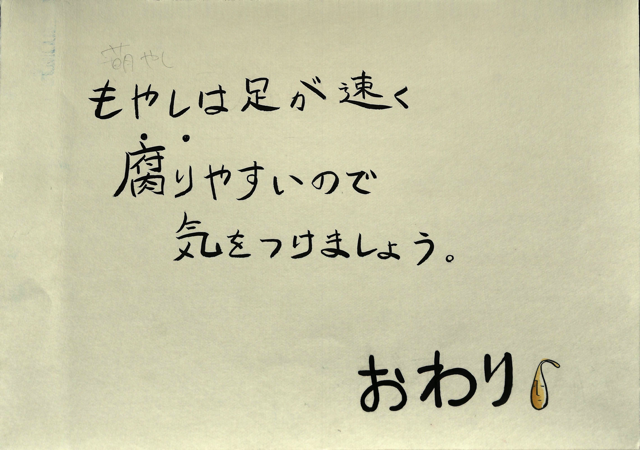 萌やし
もやしは足が速く
腐りやすいので
気をつけましょう。
おわり